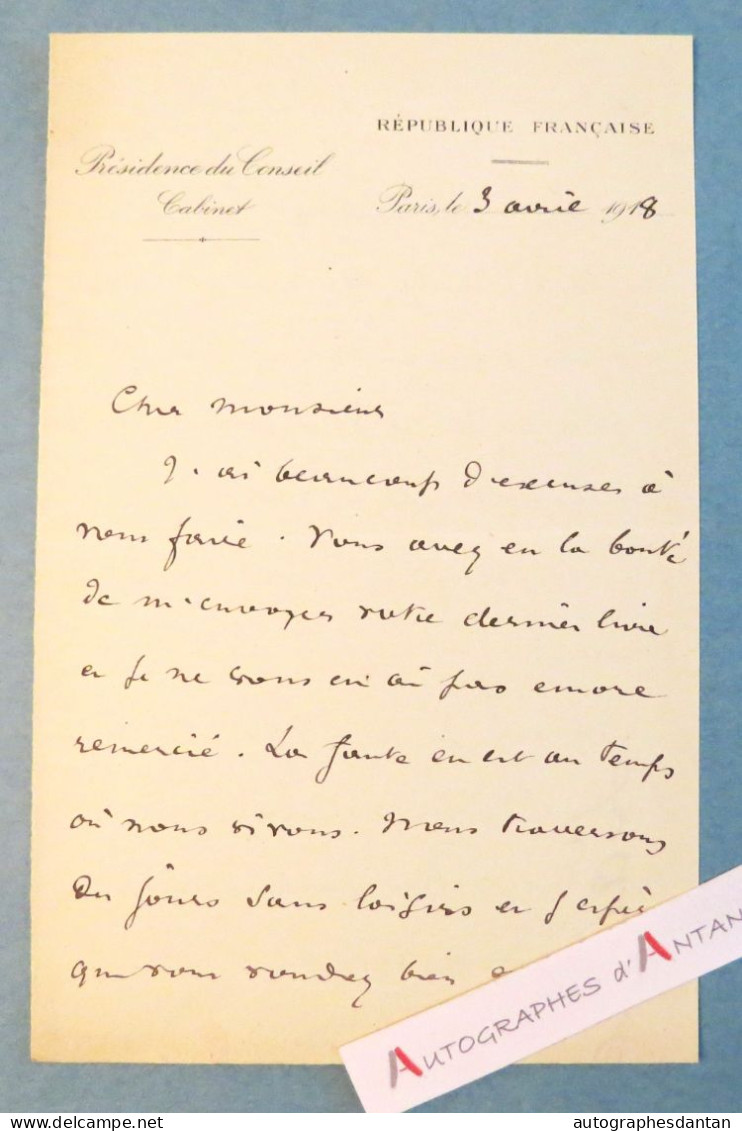 RÉPUBLIQUE FRANÇAISE
Présidence du Conseil
Cabinet
Paris, le 3 avril 1918
Cher monsieur
J'ai beaucoup d'excuses à
vous faire. Vous avez eu la bonté
de m'envoyer votre dernier livre
et je ne vous en ai pas encore
remercié. La faute en est au temps
où nous vivons. Nous traversons
des jours sans loisirs et j'espère
que vous voudrez bien
AUTOGRAPHES d'ANTAN
www.delcampe.net
autographesdantan